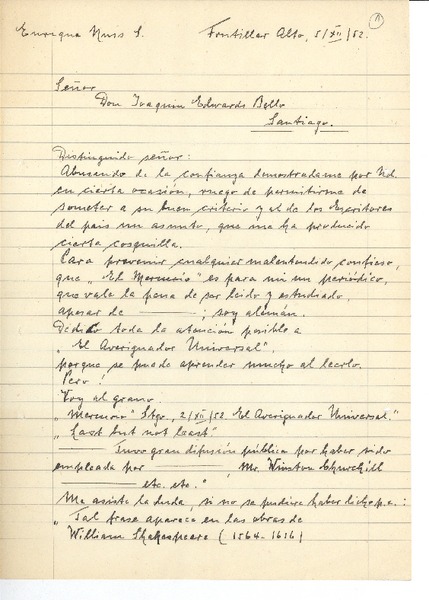 Enrique Nuss S. Frutillar Alto, 5/XII/52. 1
Señor
Don Joaquín Edwards Bello
Santiago.
Distinguido señor:
Abusando de la confianza demostradame por Ud.
en cierta ocasión, ruego de permitirme de
someter a su buen criterio y al de los Escritores
del país un asunto, que me ha producido
cierta cosquilla.
Para prevenir cualquier malentendido confieso,
que „El Mercurio" es para mi un periódico,
que vale la pena de ser leido y estudiado,
apesar de ———— ; soy alemán.
Dedico toda la atención posible a
„El Averiguador Universal",
porque se puede aprender mucho al leerlo.
Pero!
Voy al grano:
„Mercurio" Stgo. 2/XII/52. El Averiguador Universal."
„Last but not least".
———— Tuvo gran difusión pública por haber sido
empleada por ————, Mr. Winston Churchill
———— etc. etc."
Me asiste la duda, si no se pudiera haber dicho p.e.:
„Tal frase aparece en las obras de
William Shakespeare (1564-1616)